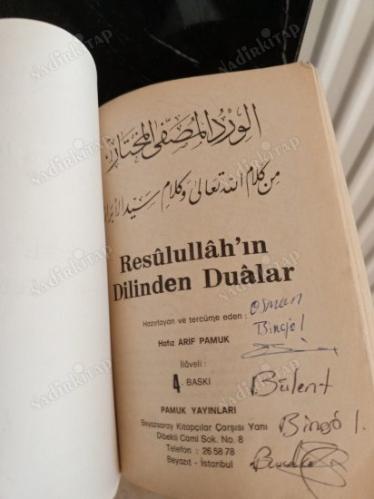 الورد المصفى المختار
من كلام الله تعالى وكلام سيد الأبرار
Resûlullâh'ın
Dilinden Duâlar
Hazırlayan ve tercüme eden :
Hafız ARİF PAMUK
İlâveli :
4. BASKI
PAMUK YAYINLARI
Beyazsaray Kitapçılar Çarşısı Yanı
Dibekli Cami Sok. No. 8
Telefon : 26 58 78
Beyazıt - İstanbul
Osman
Bingöl
Bülent
Bingöl
NadirKitap